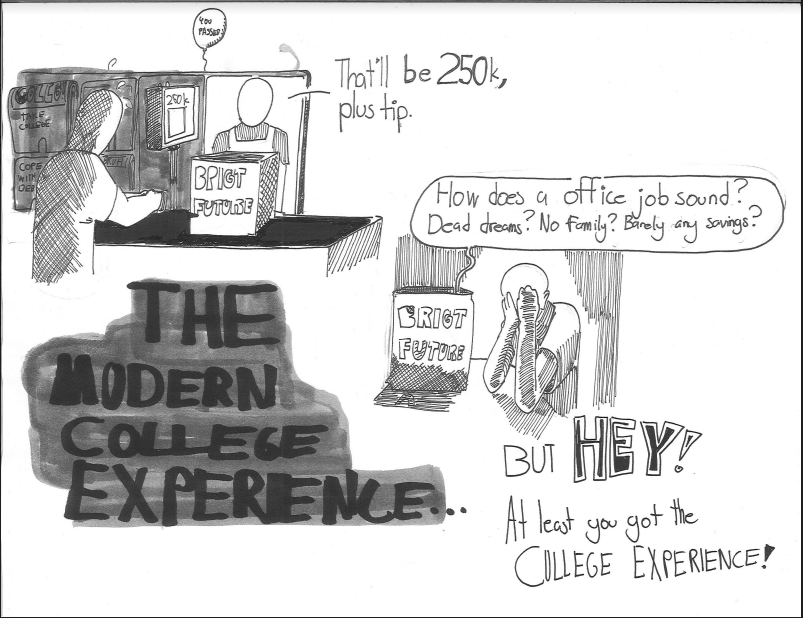 YOU
PASSED!
That'll be 250k,
plus tip.
COLLEGE
TAKE
COLLEGE
250k
COPE
WITH
DEB
BRIGT
FUTURE
How does a office job sound?
Dead dreams? No family? Barely any savings?
BRIGT
FUTURE
THE
MODERN
COLLEGE
EXPERIENCE...
BUT HEY!
At least you got the
COLLEGE EXPERIENCE!